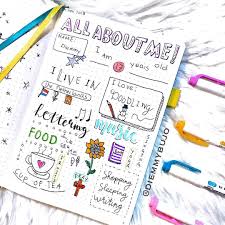 ALL ABOUT ME!
NAME:
I am 17 years old
I LIVE IN
I Love:
Doodling
Lettering
music
FOOD
Shopping
Sleeping
Writing
CUP OF TEA
@DIEMMYBUJO